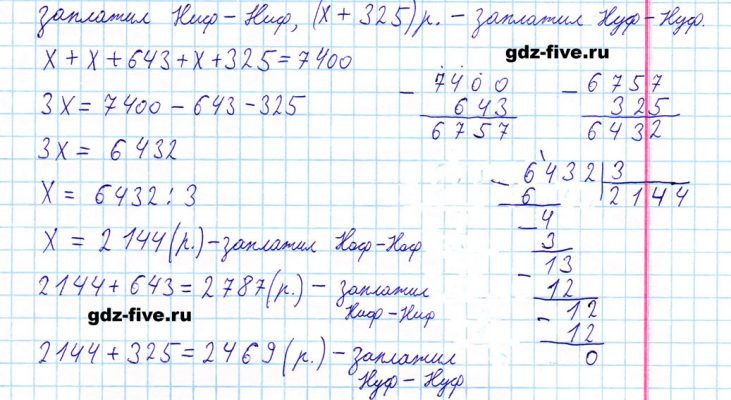 заплатил Ниф-Ниф, (х + 325) р. - заплатил Нуф-Нуф.
gdz-five.ru
х + х + 643 + х + 325 = 7400
3х = 7400 - 643 - 325
3х = 6432
х = 6432 : 3
х = 2144 (р.) - заплатил Наф-Наф
2144 + 643 = 2787 (р.) - заплатил
Ниф-Ниф
gdz-five.ru
2144 + 325 = 2469 (р.) - заплатил
Нуф-Нуф
- 7400
643
6757
- 6757
325
6432
- 6432 | 3
6 2144
- 4
3
- 13
12
- 12
12
0